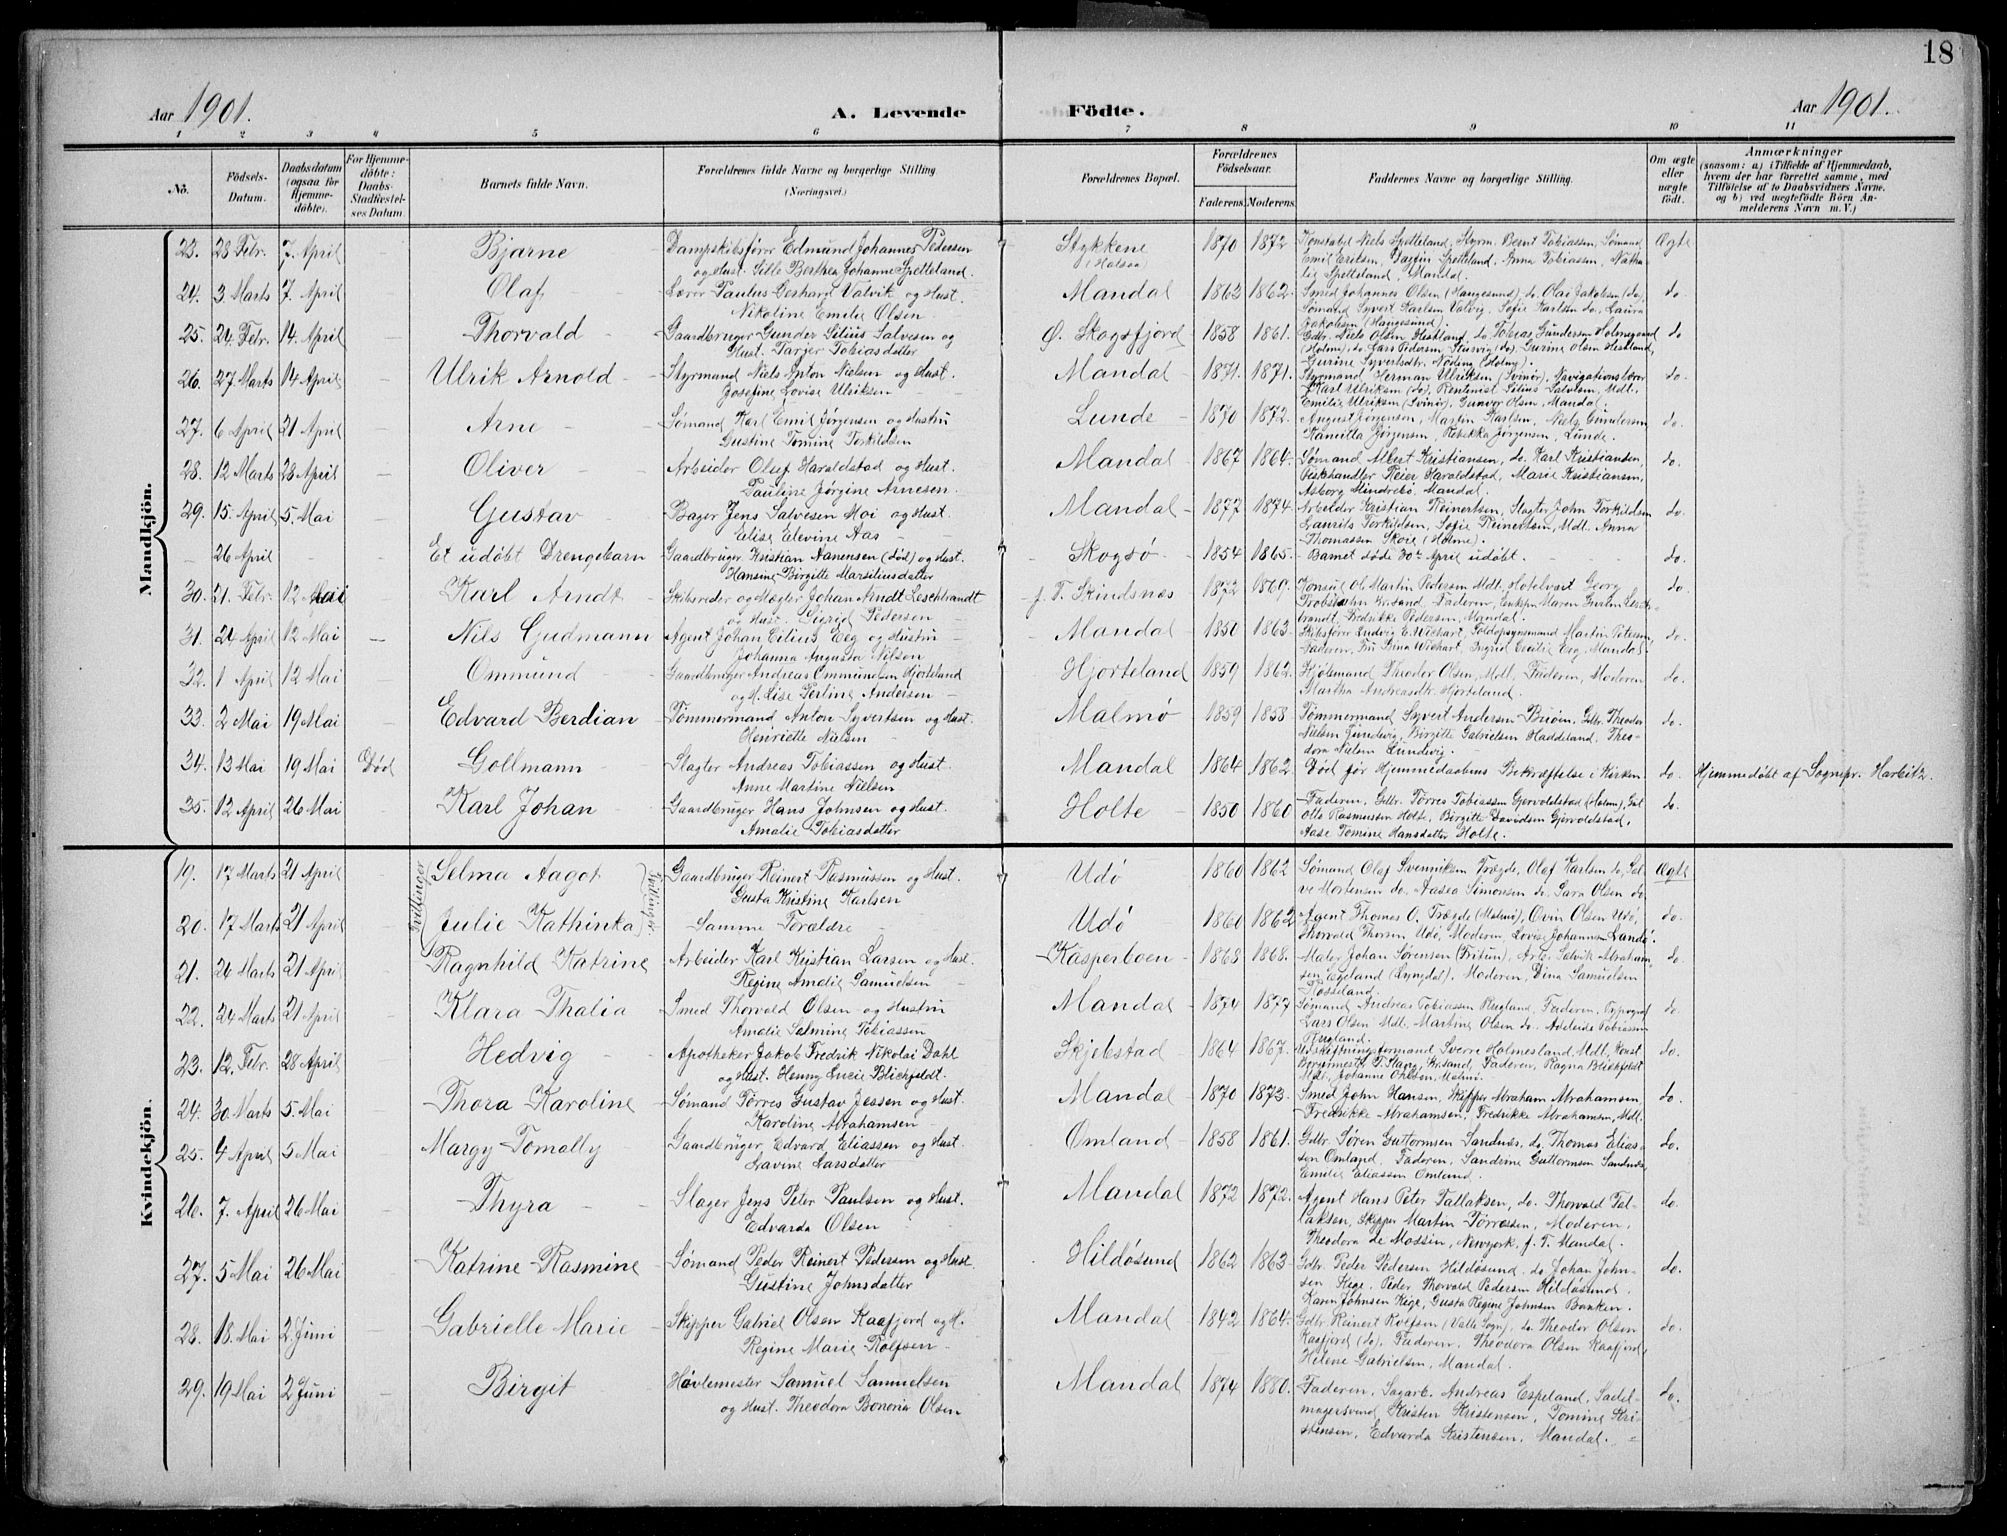 18
Aar 1901. A. Levende Födte. Aar 1901.
1 2 3 4 5 6 7 8 9 10 11
No. Födsels-Datum. Daabsdatum (ogsaa for Hjemme-döbte). For Hjemme-döbte: Daabs-Stadfæstel-ses Datum. Barnets fulde Navn. Forældrenes fulde Navne og borgerlige Stilling (Næringsvei). Forældrenes Bopæl. Forældrenes Födselsaar. Faderens. Moderens. Faddernes Navne og borgerlige Stilling. Om ægte eller uægte födt. Anmærkninger (saasom: a) i Tilfælde af Hjemmedaab, hvem der har forrettet samme, med Tilföielse af to Daabsvidners Navne. og b) ved uægtefödte Börn An-melderens Navn m. V.)
Mandkjön.
23. 28 Febr. 7. April Bjarne Dampskibsfører Edmund Johannes Pedersen Stykkene 1870 1872 Konstabel Niels Spetteland, Styrm. Bernt Tobiassen, Sømand Ægte
og Hust. Sille Berthea Johanne Spetteland. (Halsaa) Emil Eritsen, Dagfin Spetteland, Anna Tobiassen, Natha-
lie Spetteland, Mandal.
24. 3 Marts 7 April Olaf Lærer Paulus Gerhard Valvik og Hust. Mandal 1863 1862. Smed Johannes Olsen (Haugesund), do. Olai Jakobsen (do), do.
Nikoline Emilie Olsen Sømand Syvert Karlsen Valvig, Sofie Karlsen do, Laura
Jakobsen (Haugesund).
25. 24 Febr. 14. April Thorvald Gaardbruger Gunder Silius Salvesen og Ø. Skogsfjord 1858 1861. Gdbr. Niels Olsen Hestland, do. Tobias Gundersen Holmegaard do
Hust. Tarjer Tobiasdatter (Holme), do. Lars Pedersen Stusvig (do), Gurine Olsen Hestland,
Gurine Syvertsdtr. Nøding (Holme).
26. 27. Marts 14 April Ulrik Arnold Styrmand Niels Anton Nielsen og Hust. Mandal 1871. 1871. Styrmand Herman Ulriksen (Svinør), Navigationslærer do.
Josefine Lovise Ulriksen Karl Ulriksen (do), Rentenist Silius Salvesen, Mdl.
Emilie Ulriksen (Svinør), Gunvor Olsen, Mandal.
27. 6 April 21 April Arne Sømand Karl Emil Jørgensen og Hustru Lunde 1870 1872. August Jørgensen, Martin Karlsen, Niels Gundersen, do.
Gustine Tomine Torkildsen Kanutta Jørgensen, Rebekka Jørgensen, Lunde.
28. 12 Marts 28 April Oliver Arbeider Oluf Haraldstad og Hust. Mandal 1867 1864. Sømand Albert Kristiansen, do. Karl Kristiansen, do.
Pauline Jørgine Arnesen. Fiskehandler Reier Haraldstad, Marie Kristiansen,
Asborg Mindrebø, Mandal.
29. 15. April 5. Mai Gustav Bager Jens Salvesen Moi og Hust. Mandal 1877 1874. Arbeider Kristian Reinertsen, Slagter John Torkildsen do.
Elise Elevine Aas Laurits Torkildsen, Sofie Reinertsen, Mdl. Anna
Thomassen Skoie (Holme).
26 April Et udøbt Drengebarn Gaardbruger Kristian Aanensen (død) og Hust. Skogsø 1854 1865. Barnet døde 30te April udøbt. do.
Hansine Birgitte Marsiliusdatter
30. 21. Febr. 12 Mai Karl Arndt Skibsreder og Mægler Johan Arndt Leschbrandt f. T. Skindsnæs 1872 1869. Konsul Ol. Martin Pedersen Mdl. Hotelvært Georg do
og Hust. Sigrid Pedersen Krsand. Faderen, Enkefru Maren Gurine Lesch-
brandt, Fredrikke Pedersen, Mandal.
31. 24 April 12 Mai Nils Gudmann Agent Johan Eilius Eeg og Hustru Mandal 1850 1863. Skibsfører Ludvig E. Wichart, Toldopsynsmand Martin Petersen, do.
Johanna Augusta Nilson Faderen, Fru Wichart, Ingrid Cecilie Eeg, Mandal.
32. 1 April 12 Mai Ommund Gaardbruger Andreas Ommundsen Hjorteland Hjorteland 1859 1862. Hjulmand Theodor Olsen, Mdl. Faderen, Moderen do.
og H. Lise Andersen Martha Andreasdtr. Hjorteland.
33. 2 Mai 19 Mai Edvard Berdian Tømmermand Anton Syvertsen og Hust. Malmø 1859 1858 Tømmermand Syvert Andersen Buøen, Gdbr. Theodor do.
Henriette Nielsen Nielsen Lundevig, Birgitte Gabrielsen Haddeland, Theo-
dora Nielsen Lundevig.
34. 13 Mai 19 Mai Død Gollmann Slagter Andreas Tobiassen og Hust. Mandal 1864 1862. Død før Hjemmedaabens Bekræftelse i Kirken do. Hjemmedøbt af Sognepr. Harbitz.
Anne Martine Nielsen
35. 12 April 26 Mai Karl Johan Gaardbruger Hans Johnsen og Hust. Holte 1850 1860 Faderen, Gdbr. Tørres Tobiassen Gjervoldstad (Holme), do.
Amalie Tobiasdatter Otto Rasmussen Holte, Birgitte Davidsen Gjervoldstad,
Aase Tomine Hansdatter Holte.
Kvindekjön.
19. 17 Marts 21 April Tvillinger Selma Aagot Tvillinger. Gaardbruger Reinert Rasmussen og Hust. Udø 1860 1862 Sømand Olaf Svenniksen Trægde, Olaf Karlsen do, Sal- Ægte
Gusta Kristine Karlsen ve Mortensen do. Aasea Simonsen do. Sara Olsen do
20. 17 Marts 21 April Julie Kathinka Samme Forældre Udø 1860 1862 Agent Thomas O. Trægde (Malmø), Ovin Olsen Udø, do.
Thorvald Thorsen Udø, Moderen, Lovise Johannes. Landø.
21. 26 Marts 21 April Ragnhild Katrine Arbeider Karl Kristian Larsen og Hust. Kasperboen 1868 1868. Maler Johan Sørensen (Fritun), Arb. Salvik Abraham- do.
Regine Amalie Samuelsen sen Egeland (Lyngdal). Moderen, Dina Samuelsen
Rosseland.
22. 24 Marts 21 April Klara Thalia Smed Thorvald Olsen og Hustru Mandal 1874 1877 Sømand Andreas Tobiassen Rugland, Faderen, Typograf do.
Amalie Salmine Tobiassen Lars Olsen Mdl. Martine Olsen do. Adeleide Tobiassen
Rugland.
23. 12. Febr. 28 April Hedvig Apotheker Jakob Fredrik Nikolai Dahl Skjebstad 1864 1867. Udskiftningsformand Sverre Holmesland, Mdl. Konst. do.
og Hust. Henny Lucie Blichfeldt. Borgermester T. Stang, Krsand, Faderen, Ragna Blichfeldt
Mdl, Johanne Ohlsen, Malmø.
24. 30 Marts 5. Mai Thora Karoline Sømand Tørres Gustav Jessen og Hust. Mandal 1870 1873. Smed John Hansen, Skipper Abraham Abrahamsen, do.
Karoline Abrahamsen Fredrikke Abrahamsen, Fredrikke Abrahamsen, Mdl.
25. 4 April 5 Mai Margy Tomally Gaardbruger Edvard Eliassen og Hust. Omland 1858 1861. Gdbr. Søren Guttormsen Sandnæs, do. Thomas Elias- do.
Lavine Larsdatter sen Omland. Faderen, Sandrine Guttormsen Sandnæs,
Emilie Eliassen Omland.
26. 7. April 26 Mai Thyra Slager Jens Peter Paulsen og Hust. Mandal 1872 1872. Agent Hans Peter Tallaksen, do. Thorvald Tal- do.
Edvarda Olsen laksen, Skipper Martin Tørressen, Moderen,
Theodora de Mossin, Newyork, f. T. Mandal.
27. 5 Mai 26 Mai Katrine Rasmine Sømand Peder Reinert Pedersen og Hust. Hildøsund 1862 1863 Gdbr. Peder Pedersen Hildøsund. do Johan John- do.
Gustine Johnsdatter sen Kige. Peder Thorvald Pedersen Hildøsund.
Karen Johnsen Kige, Gusta Regine Johnsen Banken.
28. 18. Mai 2. Juni Gabrielle Marie Skipper Gabriel Olsen Kaafjord og H. Mandal 1842 1864. Gdbr. Reinert Rolfsen (Valle Sogn), do. Theodor Olsen do.
Regine Marie Rolfsen. Kaafjord (do), Faderen, Theodora Olsen Kaafjord,
Helene Gabrielsen, Mandal.
29. 19 Mai 2 Juni Birgit Høvlemester Samuel Samuelsen Mandal 1874 1880. Faderen, Sagarb. Andreas Espeland, Sadel- do.
og Hust. Theodora Bonoria Olsen magersvend Kristen Kristensen, Tomine Kri-
stensen, Edvarda Kristensen, Mandal.